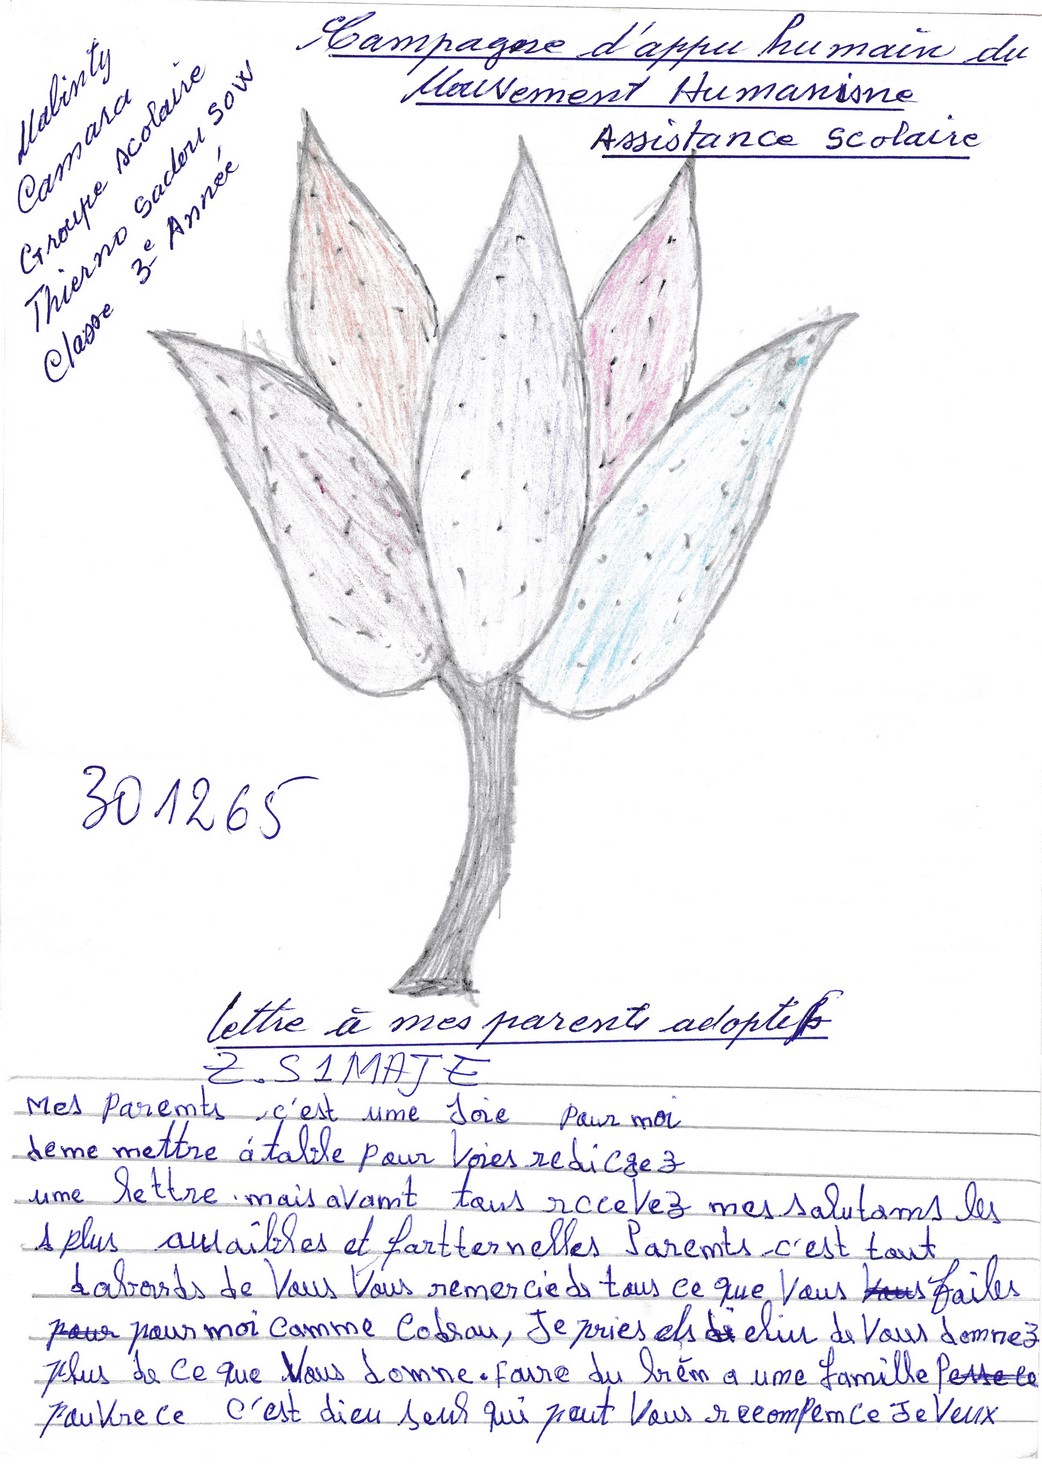 Campagne d'appu humain du
Mouvement Humanisne
Assistance scolaire
Mabinty
Camara
Groupe scolaire
Thierno Sadou SOW
Classe 3e Année
301265
lettre à mes parents adoptifs
Z. S1MAJE
Mes Parents c'est une Joie pour moi
deme mettre á table pour Voies redicgez
une lettre. mais avant tous rccevez mes salutams les
s plus amaibles et fartternelles Parents c'est tout
dabords de Vous Vous remercieds tous ce que Vous Vous failes
pour pour moi comme Codeau, Je pries els di elin de Vous domnez
plus de ce que Vous domne. faire du brém a une famille
pauvre ce c'est dieu seul qui peut Vous recompemce Je Veux